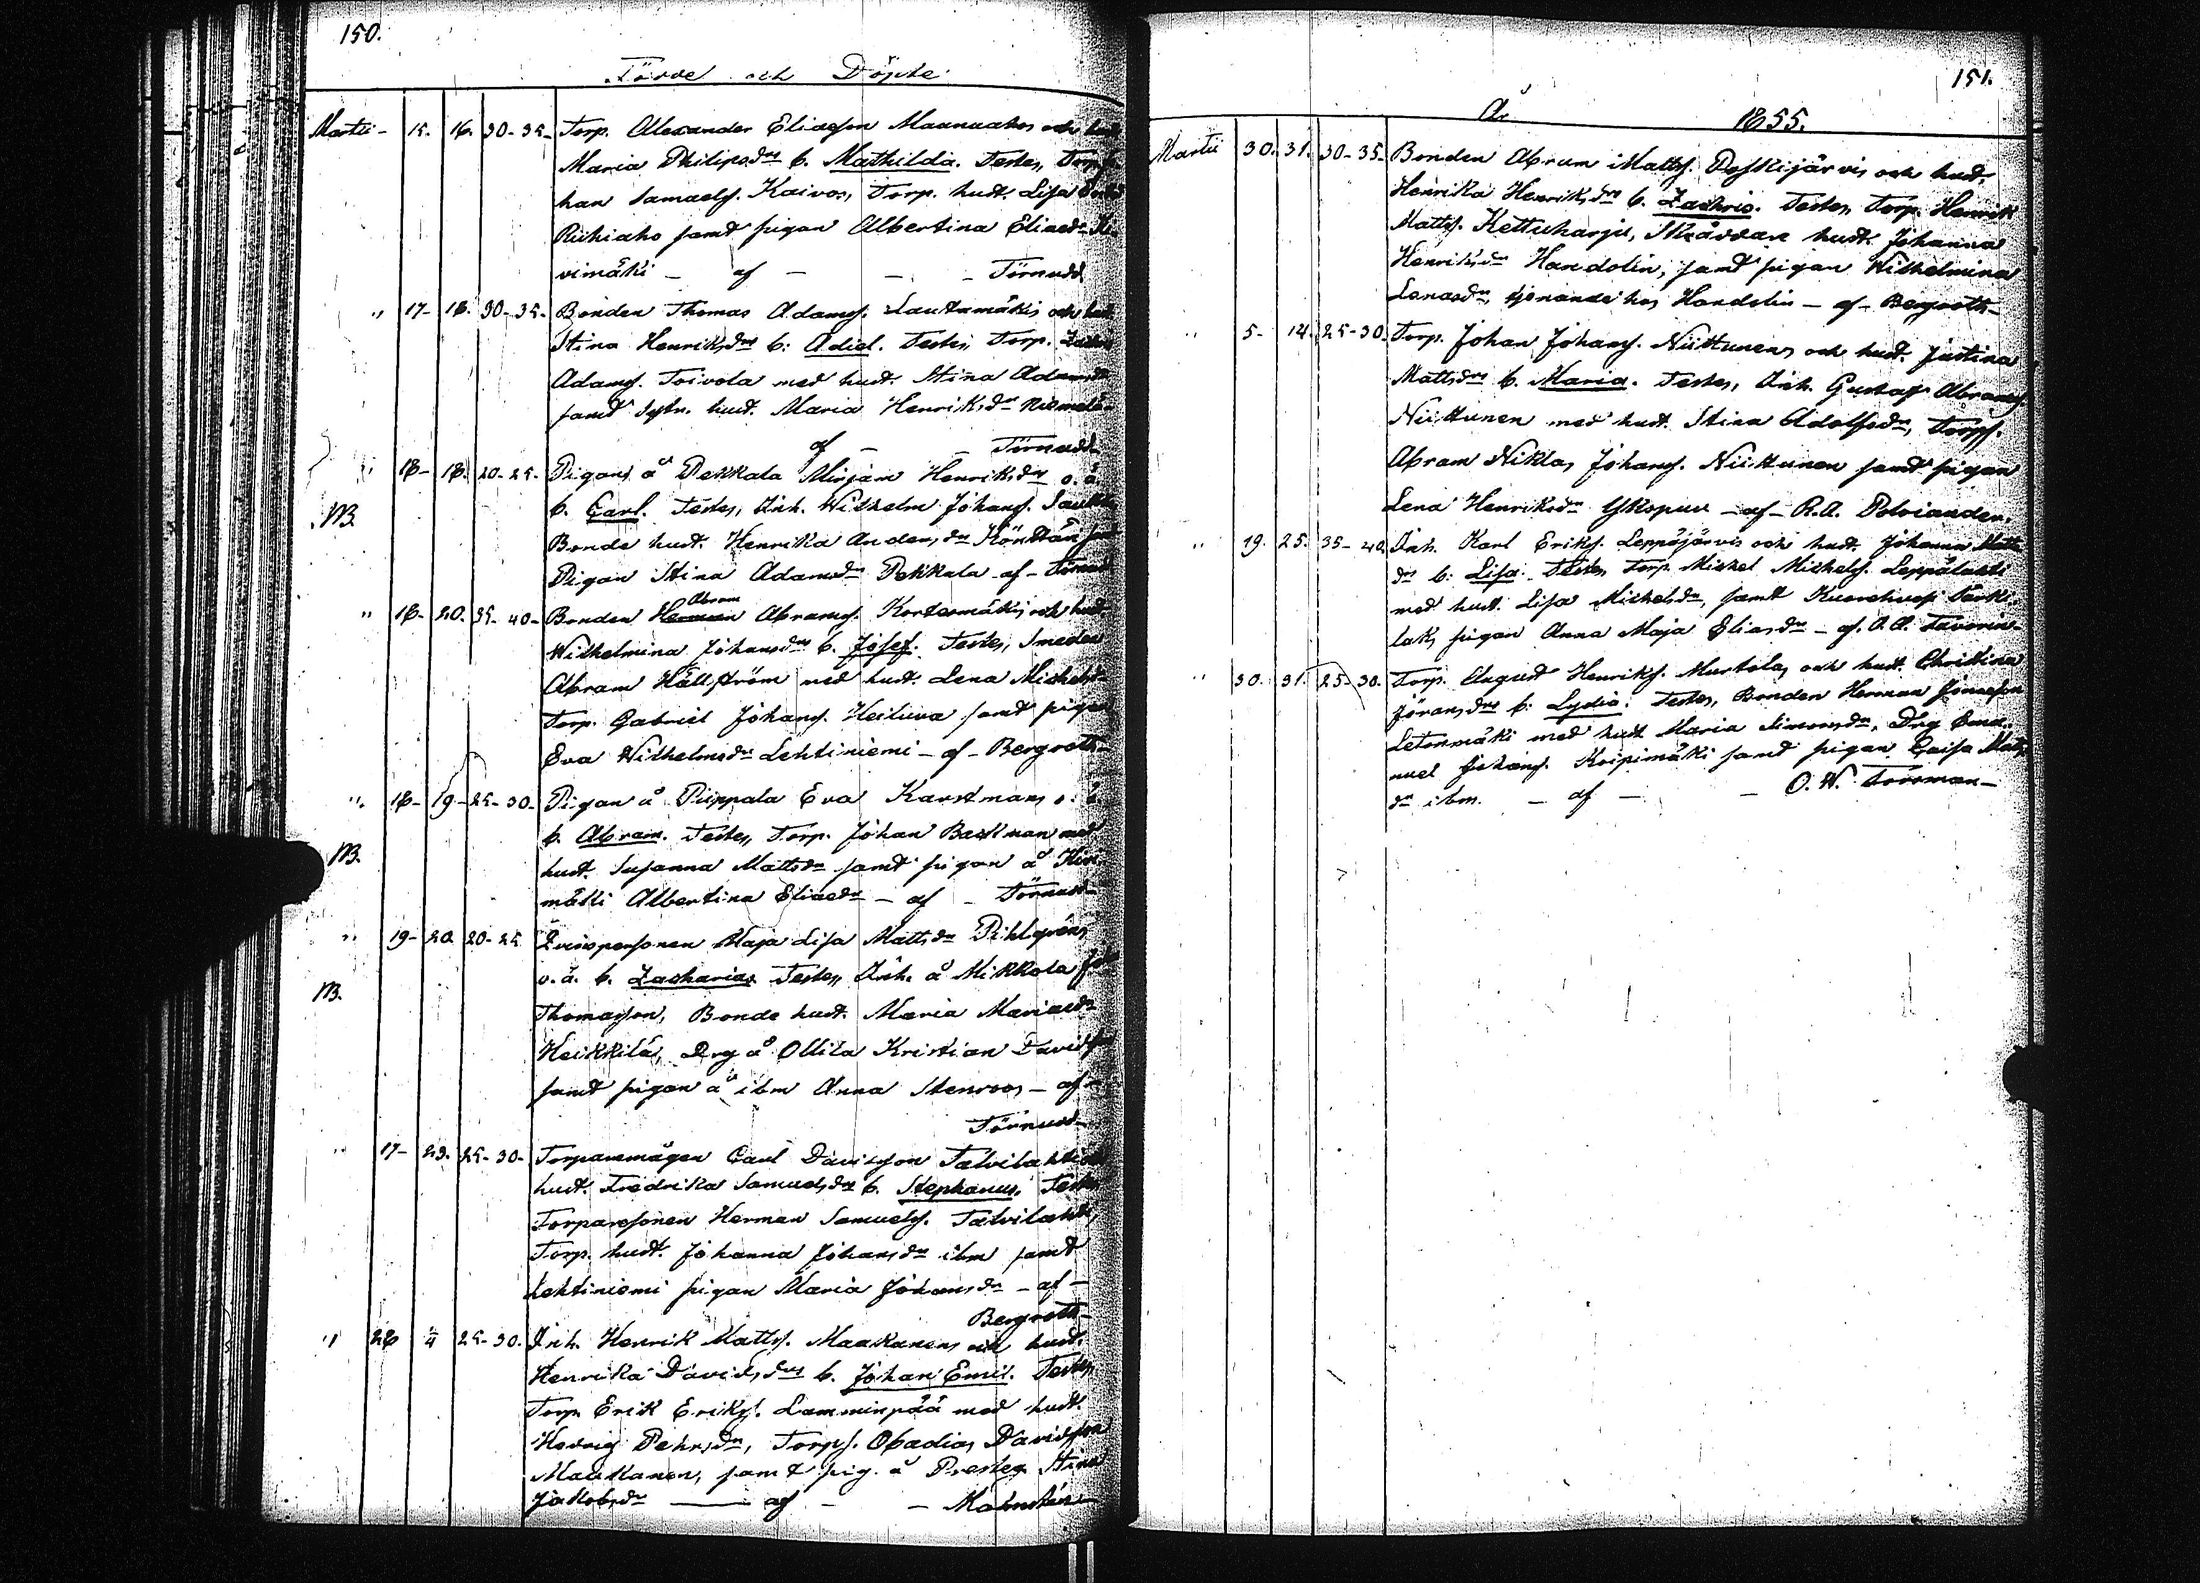 150.
Födde och Döpte
Martii - 15. 16. 30-35- Torp. Alexander Eliasson Maanaahos och hust
Maria Philipsdrs b. Mathilda. Testes, Torpf.
han Samuelsf. Kaivos, Torp. hust. Lisa
Riihiaho samt pigan Albertina Eliaedr Ki-
vimäki - af - - - Törnudd
" 17- 18. 30-35- Bonden Thomas Adamsf. Lautamäkis och hust.
Stina Henriksdrs b: Adiel. Testes Torp.
Adamsf. Toivola med hust. Stina
samt Sytn. hust. Maria Henriksdr Niemelä-
af - - Törnudd-
" 18- 18. 20-25. Pigans å Pekkala Mirjam Henriksdrs o.ä.
NB. b. Carl. Testes, Inh. Wilhelm Johansf.
Bonde hust. Henrika Andersdr Köntän samt
Pigan Stina Adamsdr Pekkala - af - Törnudd
" 18- 20. 35-40- Bonden Herman Abram Abramsf. Kortesmäkis och hust.
Wilhelmina Johansdrs b. Josef. Testes, Smeden
Abram Hällström med hust. Lena Michelsdr
Torp. Gabriel Johansf. Heiluva samt pigan
Eva Wilhelmsdr Lehtiniemi - af - Bergroth-
" 18- 19- 25-30- Pigan å Piippala Eva Karstmans o: ä
NB. b. Abram. Testes, Torp. Johan Backman med
hust. Susanna Mattsdr samt pigan å Kivi-
mäki Albertina Eliaedr - af - Törnudd-
" 19- 20. 20-25 Qvinspersonen Maja Lisa Mattsdr Pihlgréns
NB. o.ä. b. Zacharias Testes, Inh. å Mikkola Joh
Thomasson, Bonde hust. Maria Mariaedr
Heikkilä, Drg å Ollila Kristian Davidsson
samt pigan å ibm Anna Stenroos - af -
Törnudd-
" 17- 23. 25-30- Torparemågen Carl Davidsson Talvilahtis
hust. Fredrika Samuelsdrs b. Stephanus. Testes
Torparesonen Herman Samuelsf. Talvilahti,
Torp. hust. Johanna Johansdr ibm samt
Lehtiniemi pigan Maria Johansdr - af -
Bergroth-
" 28 25-30. Inh. Henrik Mattsf. Maakanens och hust.
Henrika Davidsdrs b. Johan Emil. Testes,
Torp. Erik Eriksf. Lamminpää med hust.
Hedvig Pehrsdr, Torpf. Obadias Davidsson
Maakanen, samt pig. å Presteg. Stina
Jakobsdr - af - - Malmstén-
151.
År 1855.
Martii 30. 31. 30-35- Bonden Abram Mattsf. Passijärvis och hust.
Henrika Henriksdrs b. Zachris. Testes, Torp. Henrik
Mattsf. Kettuharju, Skräddare hust. Johanna
Henriksdr Handolin, samt pigan Wilhelmina
Lenaedr, tjenande hos Handolin - af - Bergroth-
" 5- 14. 25-30. Torp. Johan Johansf. Niittunens och hust. Justina
Mattsdrs b. Maria. Testes, Inh. Gustaf Abramsf
Niittunen med hust. Stina Adolfsdr, Torpf.
Abram Niklas Johansf. Niittunen samt pigan
Lena Henriksdr Ykspuu - af - R.A. Polviander.
" 19. 25. 35-40. Inh. Karl Eriksf. Leppäjärvis och hust. Johanna Matts-
drs b: Lisa. Testes Torp. Mickel Michelsf. Leppälahti
med hust. Lisa Michelsdr, samt Kuorehvesi Särki-
laks pigan Anna Maja Eliasdr - af. A.A. Favorin-
" 30. 31. 25-30. Torp. August Henriksf. Murtolas och hust. Christina
Jöransdrs b: Lydia. Testes, Bonden Herman Jonasson
Letonmäki med hust Maria Simonsdr, Drg Ema-
nuel Johansf. Koipimäki samt pigan Caisa Matts-
dr ibm. - af - - O. W. Forsman-